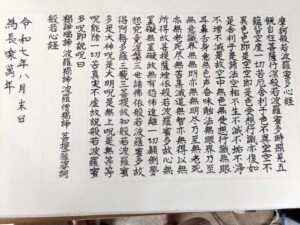 摩訶般若波羅蜜多心経
観自在菩薩行深般若波羅蜜多時照見五
蘊皆空度一切苦厄舎利子色不異空空不
異色色即是空空即是色受想行識亦復如
是舎利子是諸法空相不生不滅不垢不浄
不増不減是故空中無色無受想行識無眼
耳鼻舌身意無色声香味触法無眼界乃至
無意識界無無明亦無無明尽乃至無老死
亦無老死尽無苦集滅道無智亦無得以無
所得故菩提薩埵依般若波羅蜜多故心無
罣礙無罣礙故無有恐怖遠離一切顛倒夢
想究竟涅槃三世諸仏依般若波羅蜜多故
得阿耨多羅三藐三菩提故知般若波羅蜜
多是大神呪是大明呪是無上呪是無等等
呪能除一切苦真実不虚故説般若波羅蜜
多呪即説呪曰
羯諦羯諦 波羅羯諦 波羅僧羯諦 菩提薩婆訶
般若心経
令和七年八月末日
為長楽萬年